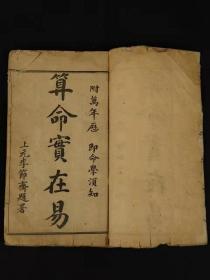 附萬年歷 即命學須知
算命實在易
上元李節齋題署